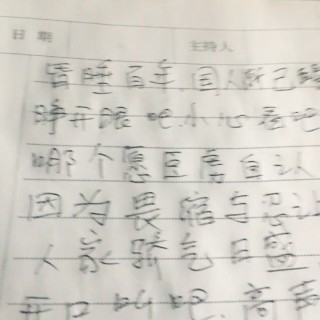 日 期
主持人
昏睡百年,国人渐已醒
睁开眼吧,小心看吧
哪个愿臣虏自认
因为畏缩与忍让
人家骄气日盛
开口叫吧,高声